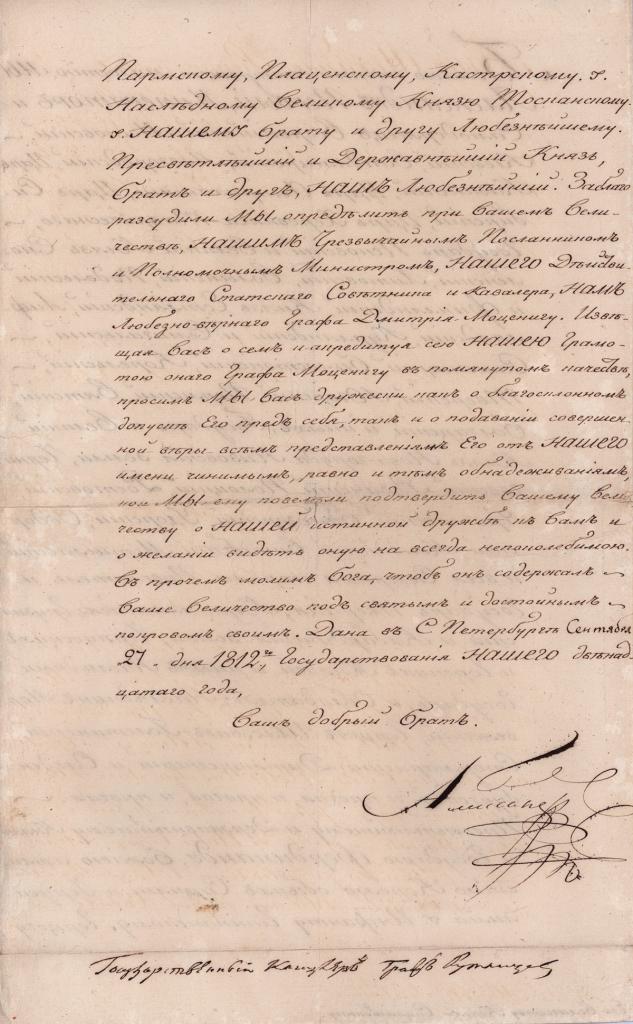 Пармскому, Плаценскому, Кастрскому. и
Наслѣдному Великому Князю Тосканскому.
и Нашему брату и другу Любезнѣйшему.
Пресвѣтлѣйшій и Державнѣйшій Князь,
братъ и другъ, Нашъ Любезнѣйшій. Заблаго
разсудили Мы опредѣлить при Вашемъ Вели-
чествѣ, Нашимъ Чрезвычайнымъ Посланникомъ
и Полномочнымъ Министромъ, Нашего Дѣйстви-
тельнаго Статскаго Совѣтника и Кавалера, Намъ
Любезно-вѣрнаго Графа Дмитрія Моценигу. Извѣ-
щая Васъ о семъ и акредитуя сею Нашею Грамо-
тою онаго Графа Моценигу въ помянутомъ качествѣ,
просимъ Мы Васъ дружески какъ о благосклонномъ
допускѣ Его предъ себя, такъ и о подаваніи совершен-
ной вѣры всѣмъ представленіямъ Его отъ Нашего
имени чинимымъ, равно и тѣмъ обнадеживаніямъ,
кои Мы ему повелѣли подтвердить Вашему Вели-
честву о Нашей истинной дружбѣ къ Вамъ и
о желаніи видѣть оную на всегда непоколебимою.
Въ прочемъ молимъ Бога, чтобъ онъ содержалъ
Ваше Величество подъ святымъ и достойнымъ
покровомъ своимъ. Дана въ С. Петербургѣ Сентября
27. дня 1812, Государствованія Нашего двѣнад-
цатаго года,
Вашъ добрый братъ.
Александръ
Государственный Канцлеръ Графъ Румянцовъ